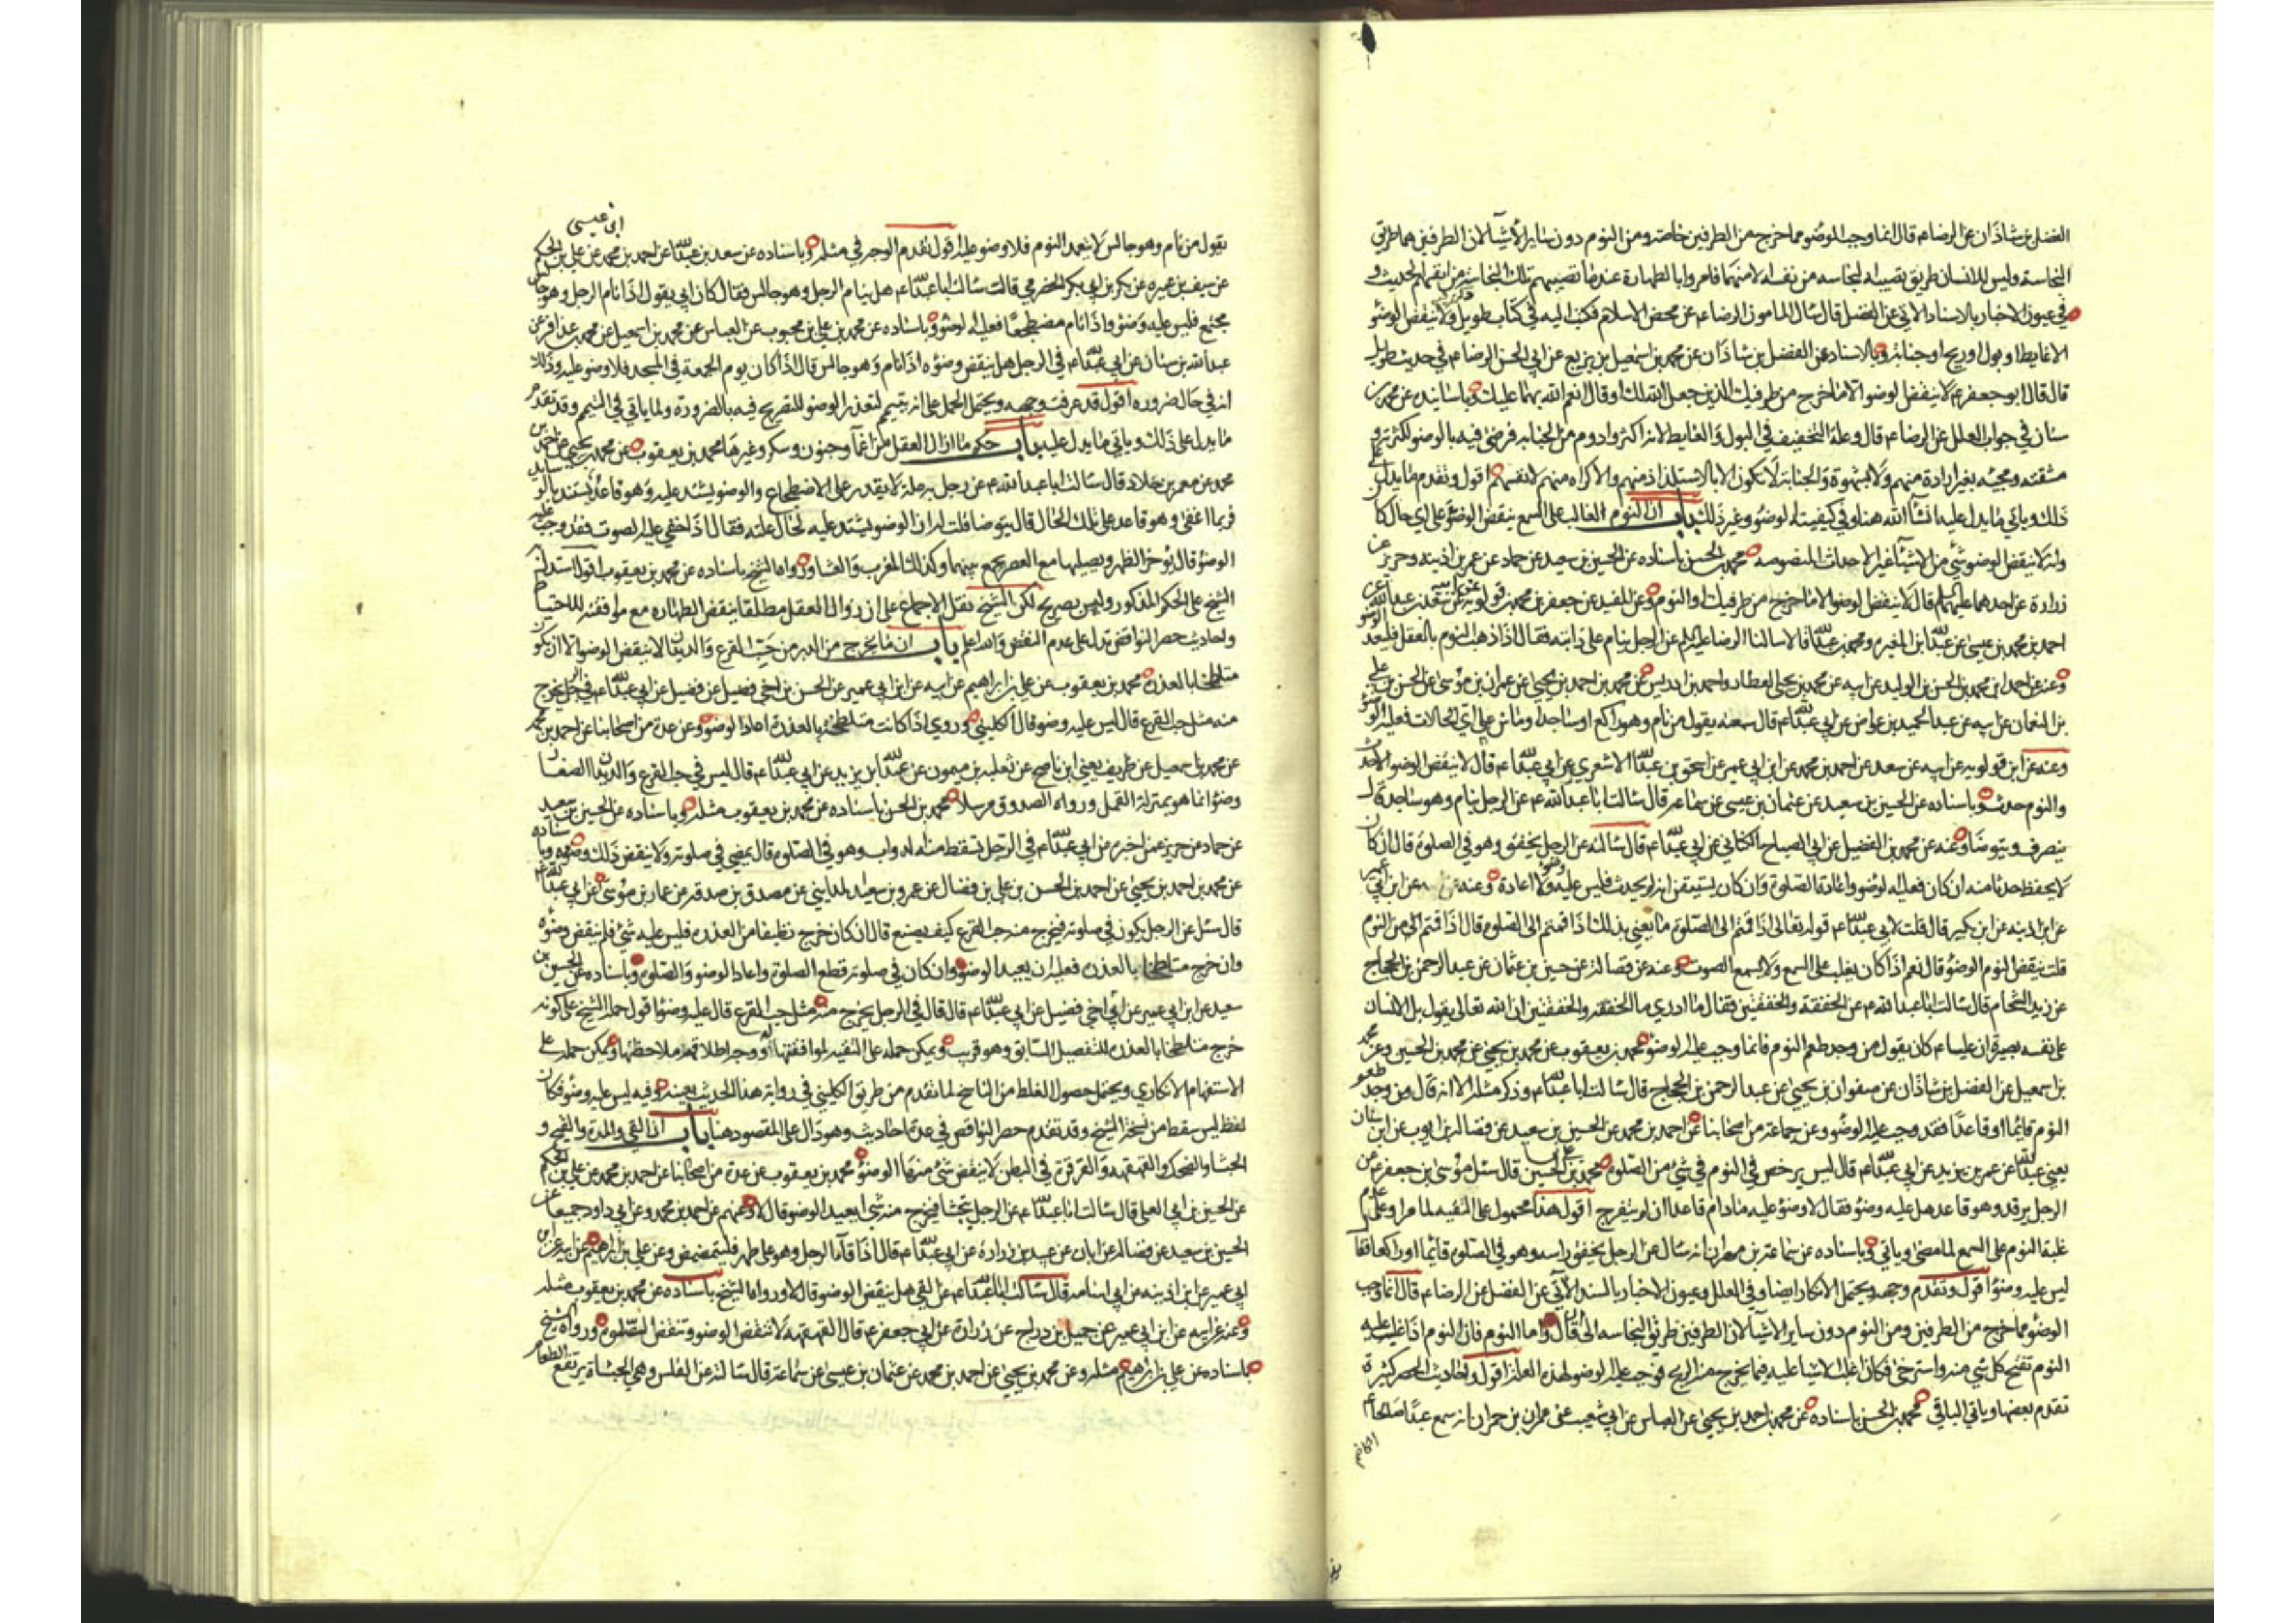 الفضل بن شاذان عن الرضا ع قال انما وجب الوضوء مما خرج من الطرفين خاصة ومن النوم دون ساير الأشياء لان الطرفين هما طريق
النجاسة وليس للانسان طريق تصيبه النجاسة من نفسه الا منهما فامروا بالطهارة عند ما تصيبهم تلك النجاسة من انفسهم الحديث و
في عيون الاخبار بالاسناد الاتي عن الفضل قال سأل المامون الرضا ع عن محض الاسلام فكتب اليه في كتاب طويل ولا ينقض الوضوء
الا غايط او بول او ريح او جنابة وبالاسناد عن الفضل بن شاذان عن محمد بن اسمعيل بن بزيع عن ابي الحسن الرضا ع في حديث طويل
قال قال ابو جعفر ع لا ينقض الوضوء الا ما خرج من طرفيك الذين جعل الله لك او قال انعم الله بهما عليك وباسانيده عن محمد بن
سنان في جواب العلل عن الرضا ع قال وعلة التخفيف في البول والغايط لانه اكثر وادوم من الجنابة فرضي فيه بالوضوء لكثرته و
مشقته ومجيئه بغير ارادة منهم ولا شهوة والجنابة لا تكون الا بالاستلذاذ منهم والاكراه منهم لانفسهم اقول وتقدم ما يدل على
ذلك وياتي ما يدل عليه انشاء الله هنا وفي كيفيته الوضوء وغير ذلك باب ان النوم الغالب على السمع ينقض الوضوء على اي حال كان
وانه لا ينقض الوضوء شئ من الاشياء غير الاحداث المنصوصه محمد بن الحسن باسناده عن الحسين بن سعيد عن حماد عن عمر بن اذينه وحريز عن
زرارة عن احدهما عليهما السلام قال لا ينقض الوضوء الا ما خرج من طرفيك او النوم وعن المفيد عن جعفر بن محمد بن قولويه عن ابيه عن سعد بن عبدالله عن
احمد بن محمد بن عيسى عن عبدالله بن المغيره ومحمد بن عبدالله قالا سالنا الرضا عليه السلام عن الرجل ينام على دابته فقال اذا ذهب النوم بالعقل فليعد الوضوء
وعنه عن احمد بن محمد بن الحسن بن الوليد عن ابيه عن محمد بن يحيى العطار واحمد بن ادريس عن محمد بن احمد بن يحيى عن عمران بن موسى عن الحسن بن علي
بن النعمان عن ابيه عن عبد الحميد بن عواض عن ابي عبدالله ع قال سمعته يقول من نام وهو راكع او ساجد او ماش على اي الحالات فعليه الوضوء
وعنه عن ابن قولويه عن ابيه عن سعد عن احمد بن محمد عن ابن ابي عمير عن اسحق بن عبدالله الاشعري عن ابي عبدالله ع قال لا ينقض الوضوء الا حدث
والنوم حدث وباسناده عن الحسين بن سعيد عن عثمان بن عيسى عن سماعة قال سالت ابا عبدالله ع عن الرجل ينام وهو ساجد قال
ينصرف ويتوضا وعنه عن محمد بن الفضيل عن ابي الصباح الكناني عن ابي عبدالله ع قال سالته عن الرجل يخفق وهو في الصلوة قال ان كان
لا يحفظ حدثا منه ان كان فعليه الوضوء واعادة الصلوة وان كان يستيقن انه لم يحدث فليس عليه وضوء ولا اعادة وعنه عن ابن ابي عمير
عن ابن اذينه عن ابن بكير قال قلت لابي عبدالله ع قوله تعالى اذا قمتم الى الصلوة ما يعني بذلك اذا قمتم الى الصلوة قال اذا قمتم من النوم
قلت ينقض النوم الوضوء قال نعم اذا كان يغلب على السمع ولا يسمع الصوت وعنه عن فضالة عن حسين بن عثمان عن عبد الرحمن بن الحجاج
عن زيد الشحام قال سالت ابا عبدالله ع عن الخفقة والخفقتين فقال ما ادري ما الخفقة والخفقتين ان الله تعالى يقول بل الانسان
على نفسه بصيرة ان عليا ع كان يقول من وجد طعم النوم فانما وجب عليه الوضوء محمد بن يعقوب عن محمد بن يحيى عن محمد بن الحسين وعن محمد
بن اسمعيل عن الفضل بن شاذان عن صفوان بن يحيى عن عبد الرحمن بن الحجاج قال سالت ابا عبدالله ع وذكر مثله الا انه قال من وجد طعم
النوم قايما او قاعدا فقد وجب عليه الوضوء وعن جماعة من اصحابنا عن احمد بن محمد عن الحسين بن سعيد عن فضالة بن ايوب عن ابن سنان
يعني عبدالله عن عمر بن يزيد عن ابي عبدالله ع قال ليس يرخص في النوم في شئ من الصلوة محمد بن علي بن الحسين قال سئل موسى بن جعفر ع عن
الرجل يرقد وهو قاعد هل عليه وضوء فقال لا وضوء عليه ما دام قاعدا ان لم ينفرج اقول هذا محمول على التقيه لما مر او على عدم
غلبة النوم على السمع لما مضى وياتي وباسناده عن سماعة بن مهران انه سال عن الرجل يخفق راسه وهو في الصلوة قائما او راكعا فقال
ليس عليه وضوء اقول وتقدم وجهه ويحتمل الانكار ايضا وفي العلل وعيون الاخبار بالسند الآتي عن الفضل عن الرضا ع قال انما وجب
الوضوء مما خرج من الطرفين ومن النوم دون ساير الاشياء لان الطرفين طريق النجاسه الى ان قال واما النوم فان النوم اذا غلب عليه
النوم تفتح كل شي منه واسترخى فكان اغلب الاشيا عليه فيما يخرج منه الريح فوجب عليه الوضوء لهذه العلة اقول واحاديث الحصر كثيرة
تقدم بعضها وياتي الباقي محمد بن الحسن باسناده عن محمد بن احمد بن يحيى عن العباس عن ابي شعيب عن عمران بن حمران انه سمع عبدا صالحا ع
يقول من نام وهو جالس لا يتعمد النوم فلا وضوء عليه اقول تقدم الوجه في مثله وباسناده عن سعد بن عبدالله عن احمد بن محمد عن علي بن الحكم
عن سيف بن عميره عن بكر بن ابي بكر الحضرمي قالت سالت ابا عبدالله ع هل ينام الرجل وهو جالس فقال كان ابي يقول اذا نام الرجل وهو جالس
مجتمع فليس عليه وضوء واذا نام مضطجعا فعليه الوضوء وباسناده عن محمد بن علي بن محبوب عن العباس عن محمد بن اسمعيل عن محمد بن عذافر عن
عبدالله بن سنان عن ابي عبدالله ع في الرجل هل ينقض وضوءه اذا نام وهو جالس قال اذا كان يوم الجمعة في المسجد فلا وضوء عليه وذلك
انه في حال ضروره اقول قد عرفت وجهه ويحتمل الحمل على انه يتيمم لتعذر الوضوء للتصريح فيه بالضرورة ولما ياتي في التيمم وقد تقدم
ما يدل على ذلك وياتي ما يدل عليه باب حكم ما ازال العقل من اغماء وجنون وسكر وغيرها محمد بن يعقوب عن محمد بن يحيى عن احمد بن
محمد عن معمر بن خلاد قال سالت ابا عبدالله ع عن رجل به علة لا يقدر على الاضطجاع والوضوء يشتد عليه وهو قاعد يستند بالوسايد
فربما اغفى وهو قاعد على تلك الحال قال يتوضا قلت له ان الوضوء يشتد عليه لحال علته فقال اذا خفي عليه الصوت فقد وجب عليه
الوضوء قال يوخر الظهر ويصليها مع العصر يجمع بينهما وكذلك المغرب والعشاء ورواه الشيخ باسناده عن محمد بن يعقوب اقول استدل به
الشيخ على الحكم المذكور وليس بصريح لكن الشيخ نقل الاجماع على ان زوال العقل مطلقا ينقض الطهاره مع موافقته للاحتياط
واحاديث حصر النواقض تدل على عدم النقض والله اعلم باب ان ما يخرج من الدبر من حب القرع والديدان لا ينقض الوضوء الا ان يكون
متلطخا بالعذرة محمد بن يعقوب عن علي بن ابراهيم عن ابيه عن ابن ابي عمير عن الحسن بن اخي فضيل عن فضيل عن ابي عبدالله ع في الرجل يخرج
منه مثل حب القرع قال ليس عليه وضوء قال الكليني وروي اذا كانت متلطخة بالعذرة اعاد الوضوء وعن عدة من اصحابنا عن احمد بن محمد
عن محمد بن اسمعيل عن ظريف يعني ابن ناصح عن ثعلبه بن ميمون عن عبدالله بن يزيد عن ابي عبدالله ع قال ليس في حب القرع والديدان الصغار
وضوء انما هو بمنزلة القمل ورواه الصدوق مرسلا محمد بن الحسن باسناده عن محمد بن يعقوب مثله وباسناده عن الحسين بن سعيد
عن حماد عن حريز عمن اخبره عن ابي عبدالله ع في الرجل تسقط منه الدواب وهو في الصلوة قال يمضي في صلوته ولا ينقض ذلك وضوءه وباسناده
عن محمد بن احمد بن يحيى عن احمد بن الحسن بن علي بن فضال عن عمرو بن سعيد المدايني عن مصدق بن صدقه عن عمار بن موسى عن ابي عبدالله ع
قال سئل عن الرجل يكون في صلوته فيخرج منه حب القرع كيف يصنع قال ان كان خرج نظيفا من العذره فليس عليه شئ فلم ينقض وضوءه
وان خرج متلطخا بالعذره فعليه ان يعيد الوضوء وان كان في صلوته قطع الصلوة واعاد الوضوء والصلوة وباسناده عن الحسين بن
سعيد عن ابن ابي عمير عن ابن اخي فضيل عن ابي عبدالله ع قال قال في الرجل يخرج منه مثل حب القرع قال عليه وضوء اقول حمله الشيخ على كونه
خرج متلطخا بالعذره للتفصيل السابق وهو قريب ويمكن حمله على التقيه لموافقتها ويمكن حمله على
الاستفهام الانكاري ويحتمل حصول الغلط من الناسخ لما تقدم من طريق الكليني في رواية هذا الحديث بعينه وفيه ليس عليه وضوء فكان
لفظ ليس سقط من نسخة الشيخ وقد تقدم حصر النواقض في عدة احاديث وهو دال على المقصود هنا باب ان القي والمدة والقيح و
الجشاء والضحك والقهقهه والقرقرة في البطن لا ينقض شئ منها الوضوء محمد بن يعقوب عن عدة من اصحابنا عن احمد بن محمد عن علي بن الحكم
عن الحسين بن ابي العلي قال سالت ابا عبدالله ع عن الرجل يتجشا فيخرج منه شئ ايعيد الوضوء قال لا وعنهم عن احمد بن محمد وعن ابي داود جميعا عن
الحسين بن سعيد عن فضالة عن ابان عن عبيد بن زرارة عن ابي عبدالله ع قال اذا قاء الرجل وهو على طهر فليتمضمض وعن علي بن ابراهيم عن ابيه عن ابن
ابي عمير عن ابن اذينه عن ابي اسامه قال سالت ابا عبدالله ع عن القي هل ينقض الوضوء قال لا ورواه الشيخ باسناده عن محمد بن يعقوب مثله
وعنه عن ابيه عن ابن ابي عمير عن جميل بن دراج عن زرارة عن ابي جعفر ع قال القهقهه لا تنقض الوضوء وتنقض الصلوة ورواه الشيخ
باسناده عن علي بن ابراهيم مثله وعن محمد بن يحيى عن احمد بن محمد عن عثمان بن عيسى عن سماعة قال سالته عن القلس وهي الجشاة يرتفع الطعام